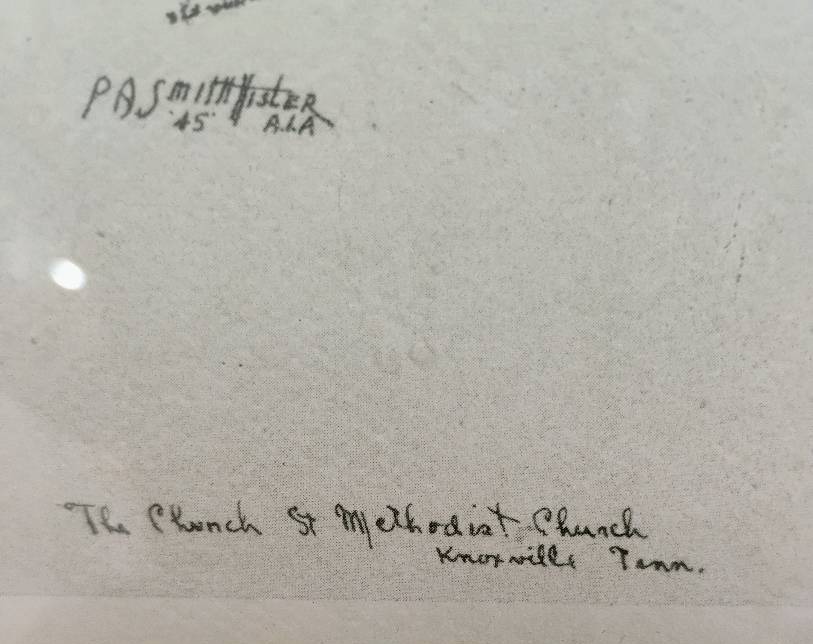 P A SMITH
'45' A.I.A
The Church St Methodist Church
Knoxville Tenn.